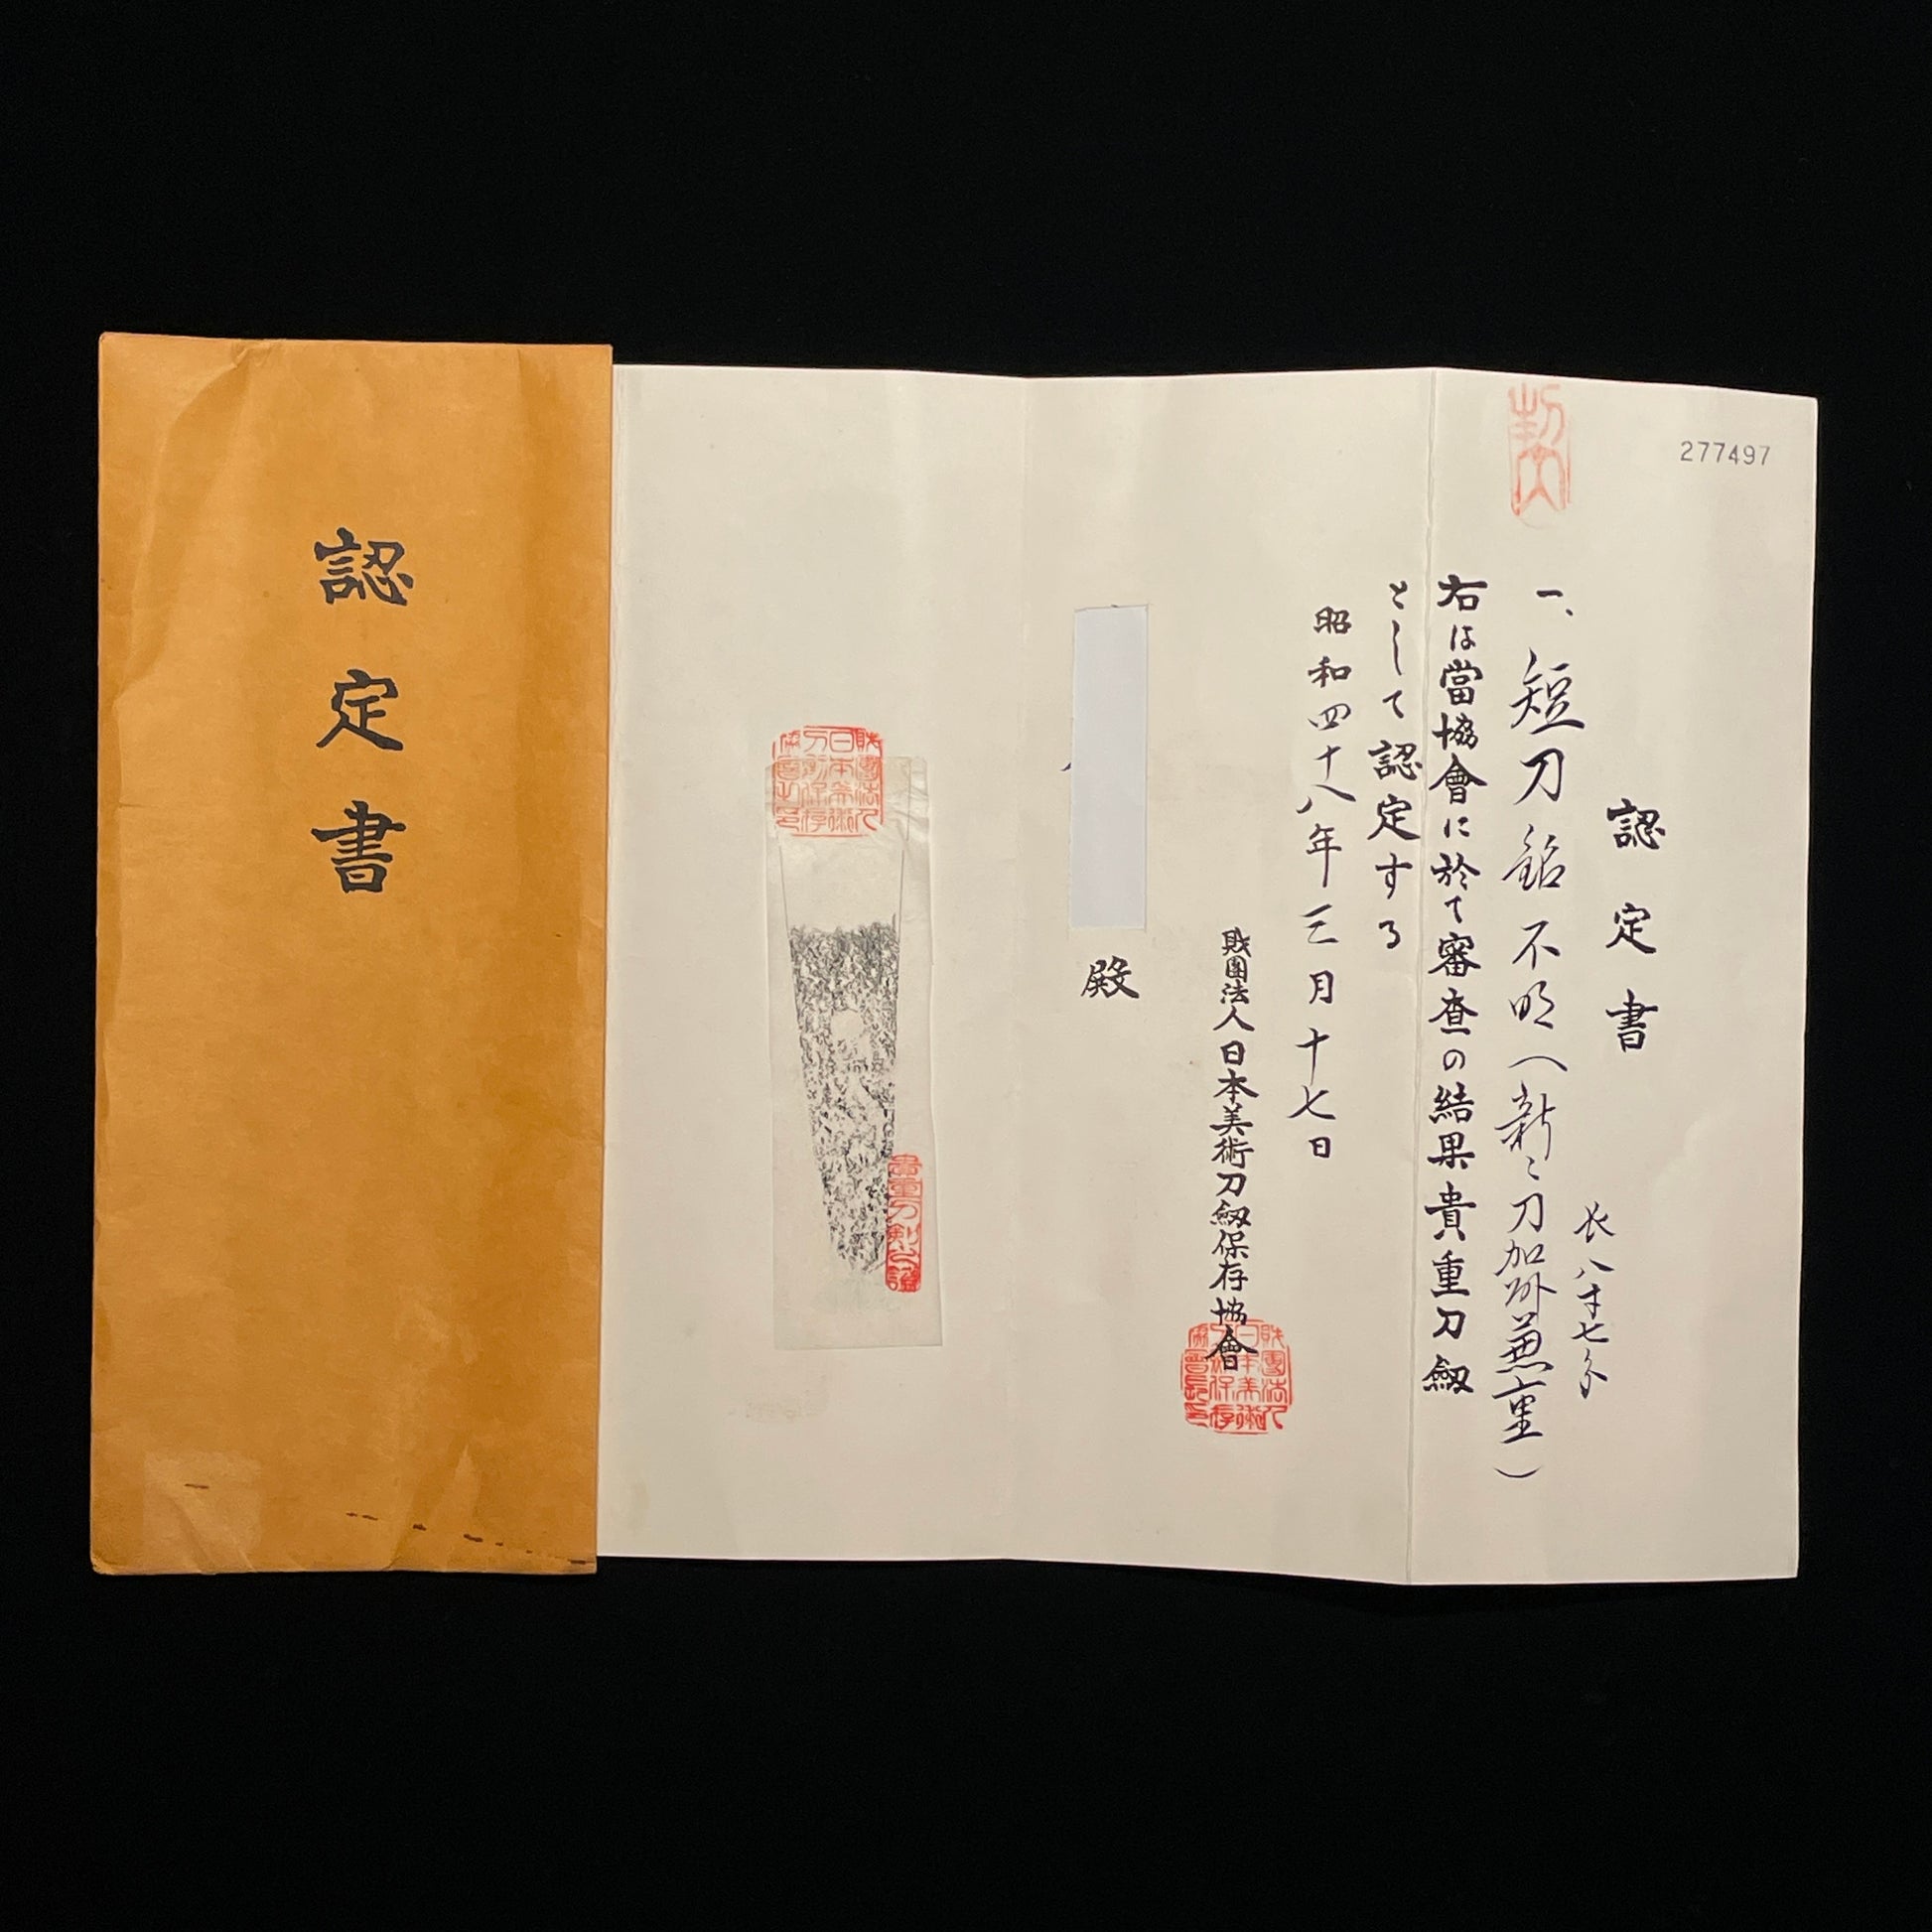 277497
認定書
長八寸七分
一、短刀 銘 不明(新々刀加州兼重)
右は當協會に於て審査の結果貴重刀剱
として認定する
昭和四十八年三月十七日
財團法人日本美術刀剱保存協會
殿
貴重刀剣之證
認定書